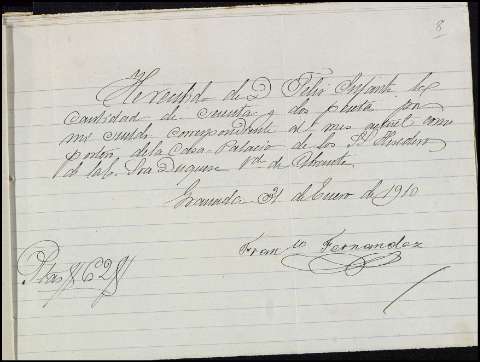 8
He recibido de D. Felix Infante la
cantidad de sesenta y dos pesetas por
mi sueldo correspondiente al mes actual como
portero de la Casa Palacio de los S. Herederos
de la E. Sra Duquesa Vda de Abrantes
Granada 31 de Enero de 1910
Franco Fernandez
Ptas # 62 #